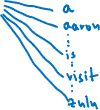 a
aaron
⋮
is
⋮
visit
⋮
zulu